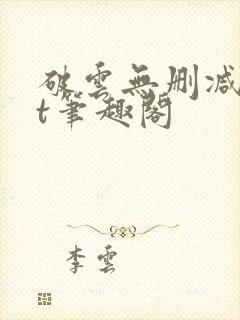 破雲無刪減
t筆趣閣
李雲